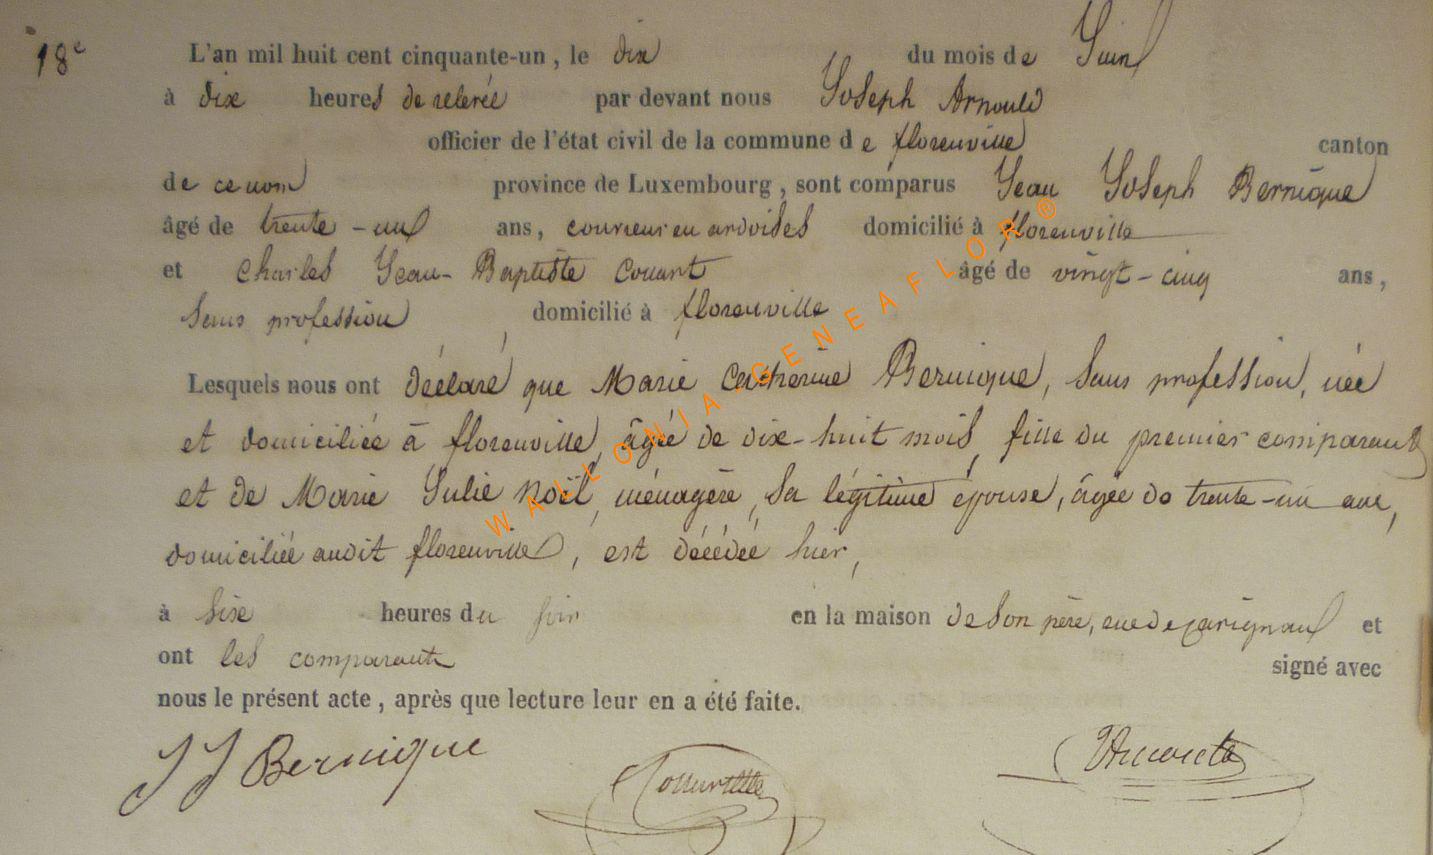 18e
L'an mil huit cent cinquante-un, le dix du mois de Juin
à dix heures de relevée par devant nous Joseph Arnould
officier de l'état civil de la commune de florenville canton
de ce nom province de Luxembourg, sont comparus Jean Joseph Bernique
âgé de trente-un ans, couvreur en ardoises domicilié à florenville
et Charles Jean-Baptiste Couart âgé de vingt-cinq ans,
sans profession, domicilié à florenville
Lesquels nous ont déclaré que Marie Catherine Bernique, sans profession, née
et domiciliée à florenville, âgée de dix-huit mois, fille du premier comparant
et de Marie Julie Noël, ménagère, sa légitime épouse, âgée de trente-un ans,
domiciliée audit florenville, est décédée hier,
à six heures du soir en la maison de son père, rue de carignan et
ont les comparants signé avec
nous le présent acte, après que lecture leur en a été faite.
J J Bernique
WALLONIA-GENEAFLOR®